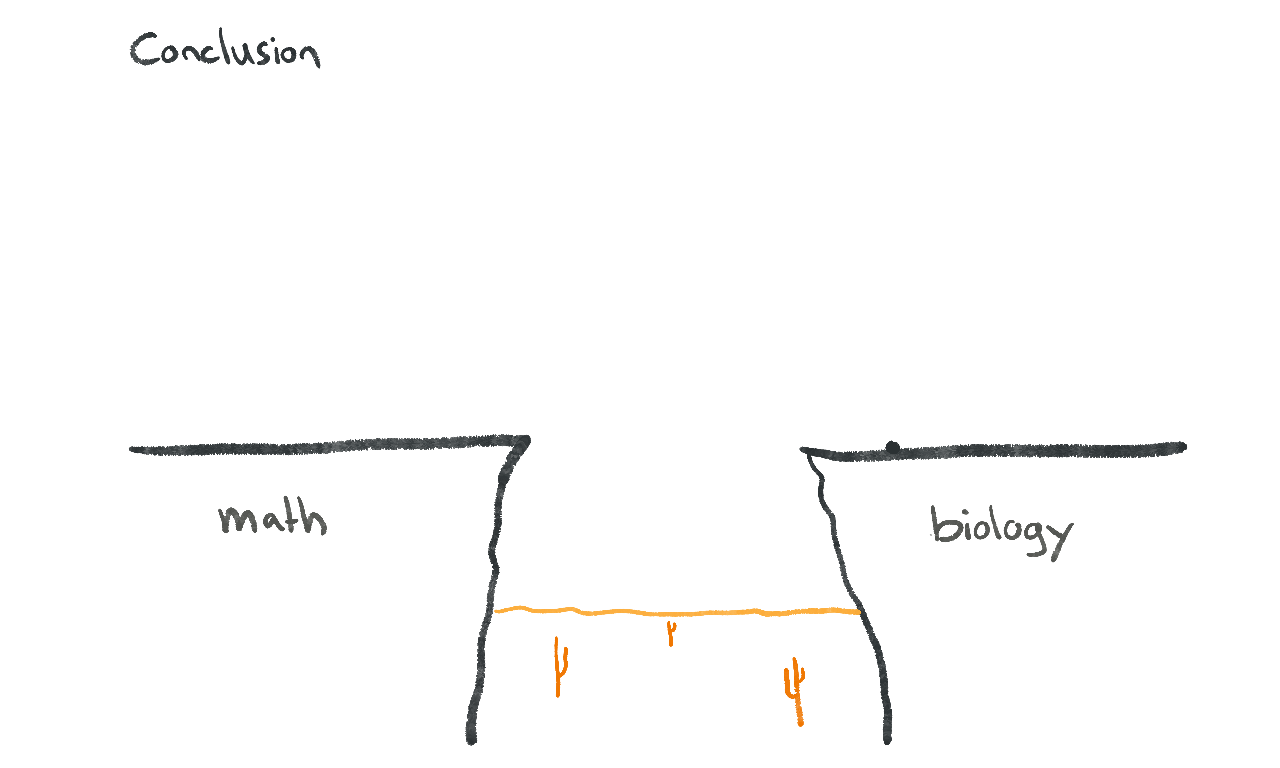 Conclusion
math
biology